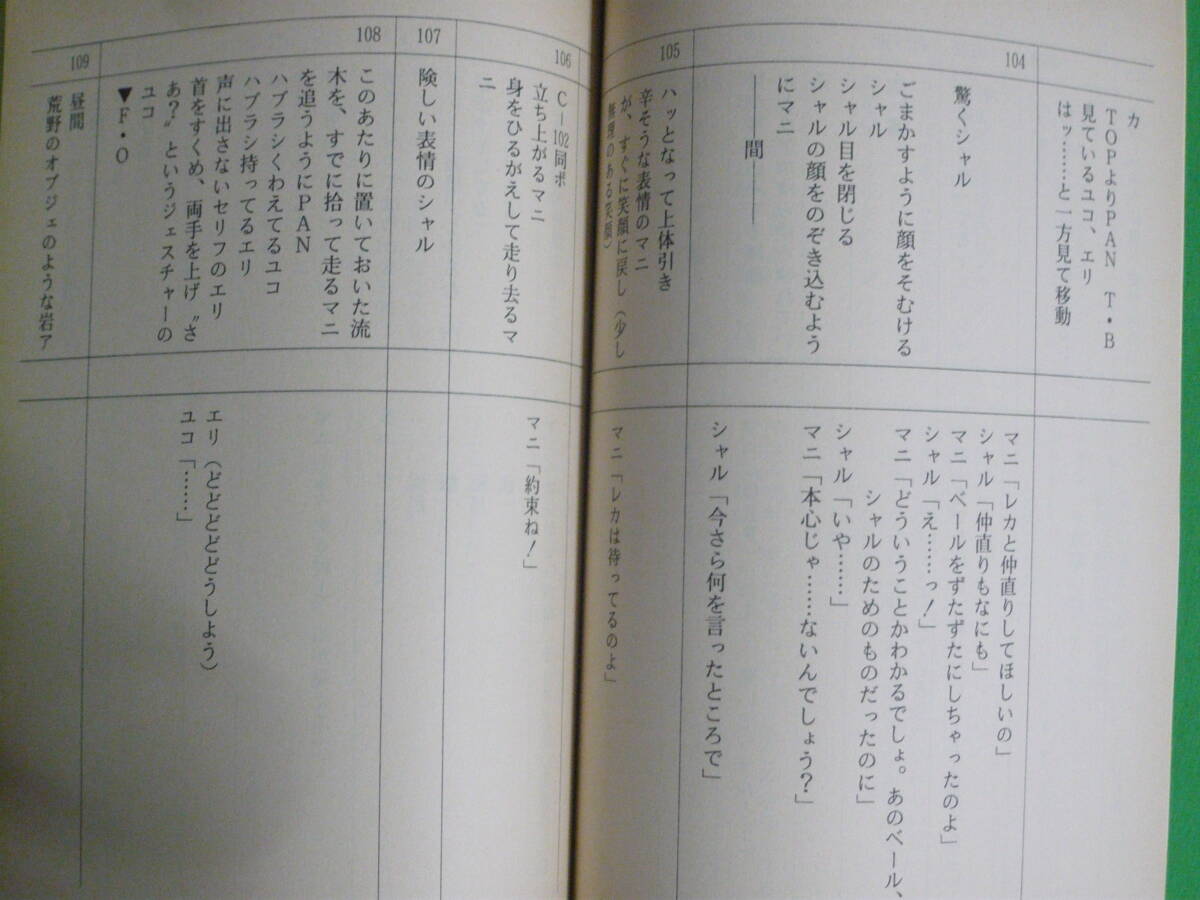 カ
TOPよりPAN T・B
見ているユコ、エリ
はッ……と一方見て移動
104
驚くシャル
ごまかすように顔をそむける
シャル
シャル目を閉じる
シャルの顔をのぞき込むよう
にマニ
———間———
マニ「レカと仲直りしてほしいの」
シャル「仲直りもなにも」
マニ「ベールをずたずたにしちゃったのよ」
シャル「え……っ！」
マニ「どういうことかわかるでしょ。あのベール、
シャルのためのものだったのに」
シャル「いや……」
マニ「本心じゃ……ないんでしょう？」
シャル「今さら何を言ったところで」
105
ハッとなって上体引き
辛そうな表情のマニ
が、すぐに笑顔に戻し（少し
無理のある笑顔）
マニ「レカは待ってるのよ」
106
C－102同ポ
立ち上がるマニ
身をひるがえして走り去るマ
ニ
マニ「約束ね！」
107
険しい表情のシャル
108
このあたりに置いておいた流
木を、すでに拾って走るマニ
を追うようにPAN
ハブラシくわえてるユコ
ハブラシ持ってるエリ
声に出さないセリフのエリ
首をすくめ、両手を上げ〝さ
あ？〟というジェスチャーの
ユコ
▼F・O
エリ（どどどどどうしよう）
ユコ「……」
109
昼間
荒野のオブジェのような岩ア